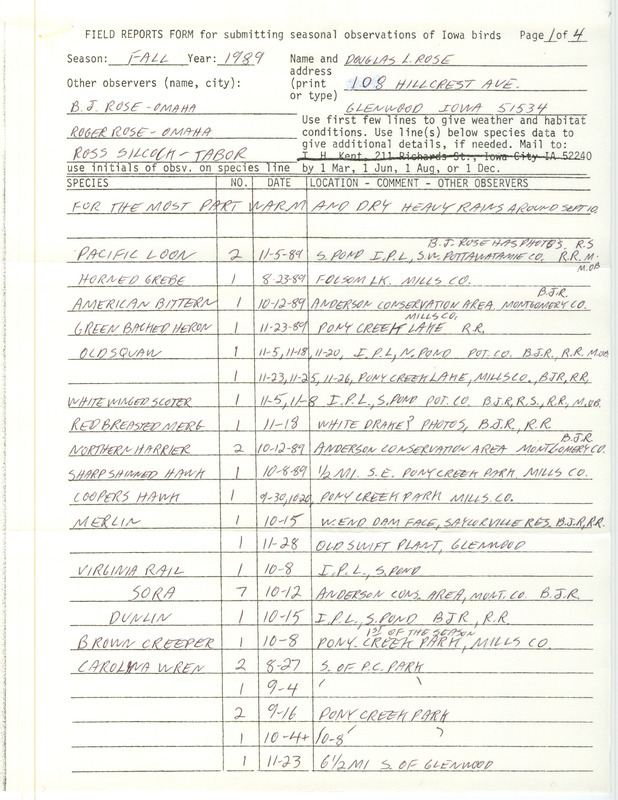 FIELD REPORTS FORM for submitting seasonal observations of Iowa birds Page 1 of 4
Season: FALL Year: 1989 Name and DOUGLAS L. ROSE
address
Other observers (name, city): (print 108 HILLCREST AVE.
or type)
B.J. ROSE-OMAHA GLENWOOD IOWA 51534
Use first few lines to give weather and habitat
ROGER ROSE-OMAHA conditions. Use line(s) below species data to
give additional details, if needed. Mail to:
ROSS SILCOCK-TABOR T. H. Kent, 211 Richards St., Iowa City IA 52240
use initials of obsv. on species line by 1 Mar, 1 Jun, 1 Aug, or 1 Dec.
SPECIES NO. DATE LOCATION - COMMENT - OTHER OBSERVERS
FOR THE MOST PART WARM AND DRY HEAVY RAINS AROUND SEPT 10.
B.J. ROSE HAS PHOTOS, R.S
PACIFIC LOON 2 11-5-89 S. POND I.P.L, S.W. POTTAWATAMIE CO. R.R. M.
M.OB
HORNED GREBE 1 8-23-89 FOLSOM LK. MILLS CO.
B.J.R
AMERICAN BITTERN 1 10-12-89 ANDERSON CONSERVATION AREA MONTGOMERY CO.
MILLS CO,
GREEN BACHED HERON 1 11-23-89 PONY CREEK LAKE R.R.
OLDSQUAW 1 11-5, 11-18, 11-20, I.P.L, N. POND POT. CO. B.J.R., R.R. M.OB
1 11-23, 11-25, 11-26, PONY CREEK LAKE, MILLS CO., BJR, RR,
WHITE WINGED SCOTER 1 11-5, 11-8 I.P.L., S. POND POT. CO B.J.R, R.S., RR, M.OB.
RED BREASTED MERG 1 11-18 WHITE DRAKE? PHOTOS, B.J.R., R.R
B.J.R
NORTHERN HARRIER 2 10-12-89 ANDERSON CONSERVATION AREA MONTGOMERY CO.
SHARP SHINNED HAWK 1 10-8-89 1/2 MI. S.E. PONY CREEK PARK, MILLS CO.
COOPERS HAWK 1 9-30, 10-20, PONY CREEK PARK MILLS.CO.
MERLIN 1 10-15 W. END DAM FACE, SAYLORVILLE RES. B.J.R, R.R.
1 11-28 OLD SWIFT PLANT, GLENWOOD
VIRGINIA RAIL 1 10-8 I.P.L., S. POND
SORA 7 10-12 ANDERSON CONS. AREA, MONT. CO. B.J.R.
DUNLIN 1 10-15 I.P.L., S. POND BJR, R.R.
1ST OF THE SEASON
BROWN CREEPER 1 10-8 PONY. CREEK PARK, MILLS CO.
CAROLINA WREN 2 8-27 S. OF P.C. PARK
1 9-4 ' '
2 9-16 PONY CREEK PARK
1 10-4+ 10-8 ' '
1 11-23 6 1/2 MI S. OF GLENWOOD